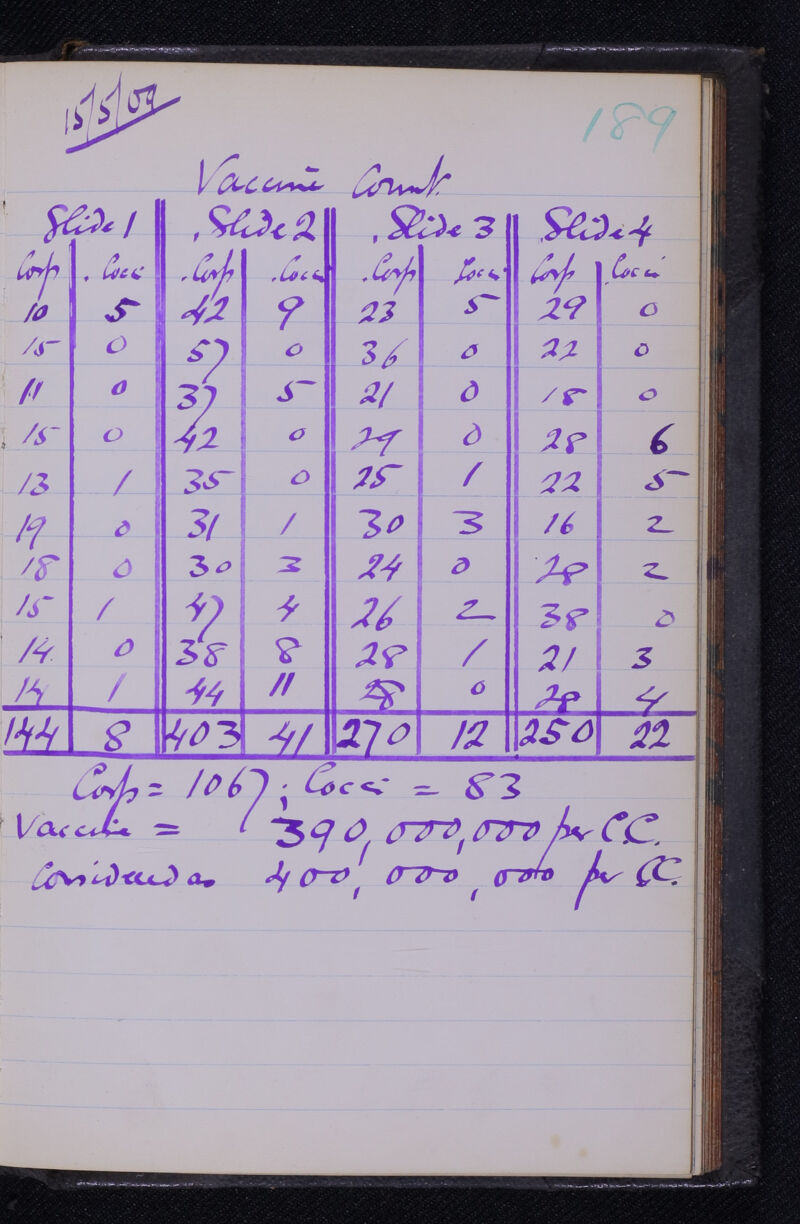 15/5/09
189
Vaccine Count.
Slide 1 Slide 2 Slide 3 Slide 4
Corp Cocci Corp Cocci Corp Cocci Corp Cocci
10 5 42 9 23 5 29 0
15 0 57 0 36 0 22 0
11 0 37 5 21 0 18 0
15 0 42 0 29 0 28 6
13 1 35 0 25 1 22 5
19 0 31 1 30 3 16 2
18 0 30 3 24 0 28 2
15 1 47 4 26 2 38 0
14 0 38 8 28 1 21 3
14 1 44 11 28 0 28 4
144 8 403 41 270 12 250 22
Corp = 1067; Cocci = 83
Vaccine = 390,000,000 per C.C.
Considered as 400,000,000 per C.C.